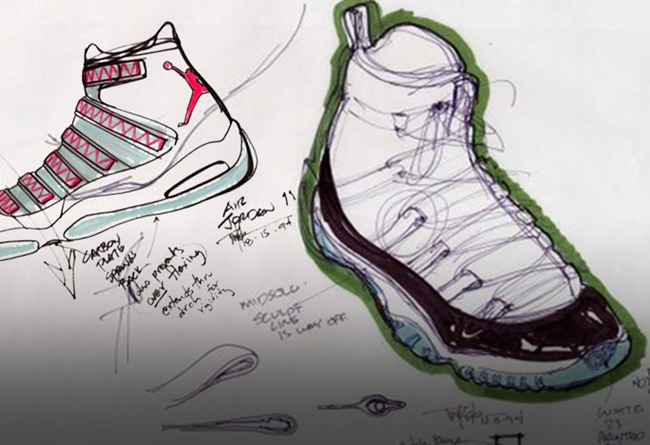 AIR
JORDAN 11
8·15·94
CARBON
PLATE
SPRINGS
BACK
also prevents
over flexing
extends thru
arch for
rigidity
MIDSOLE
SCULPT
LINE
IS WAY OFF
WHITE
23
PAINTED